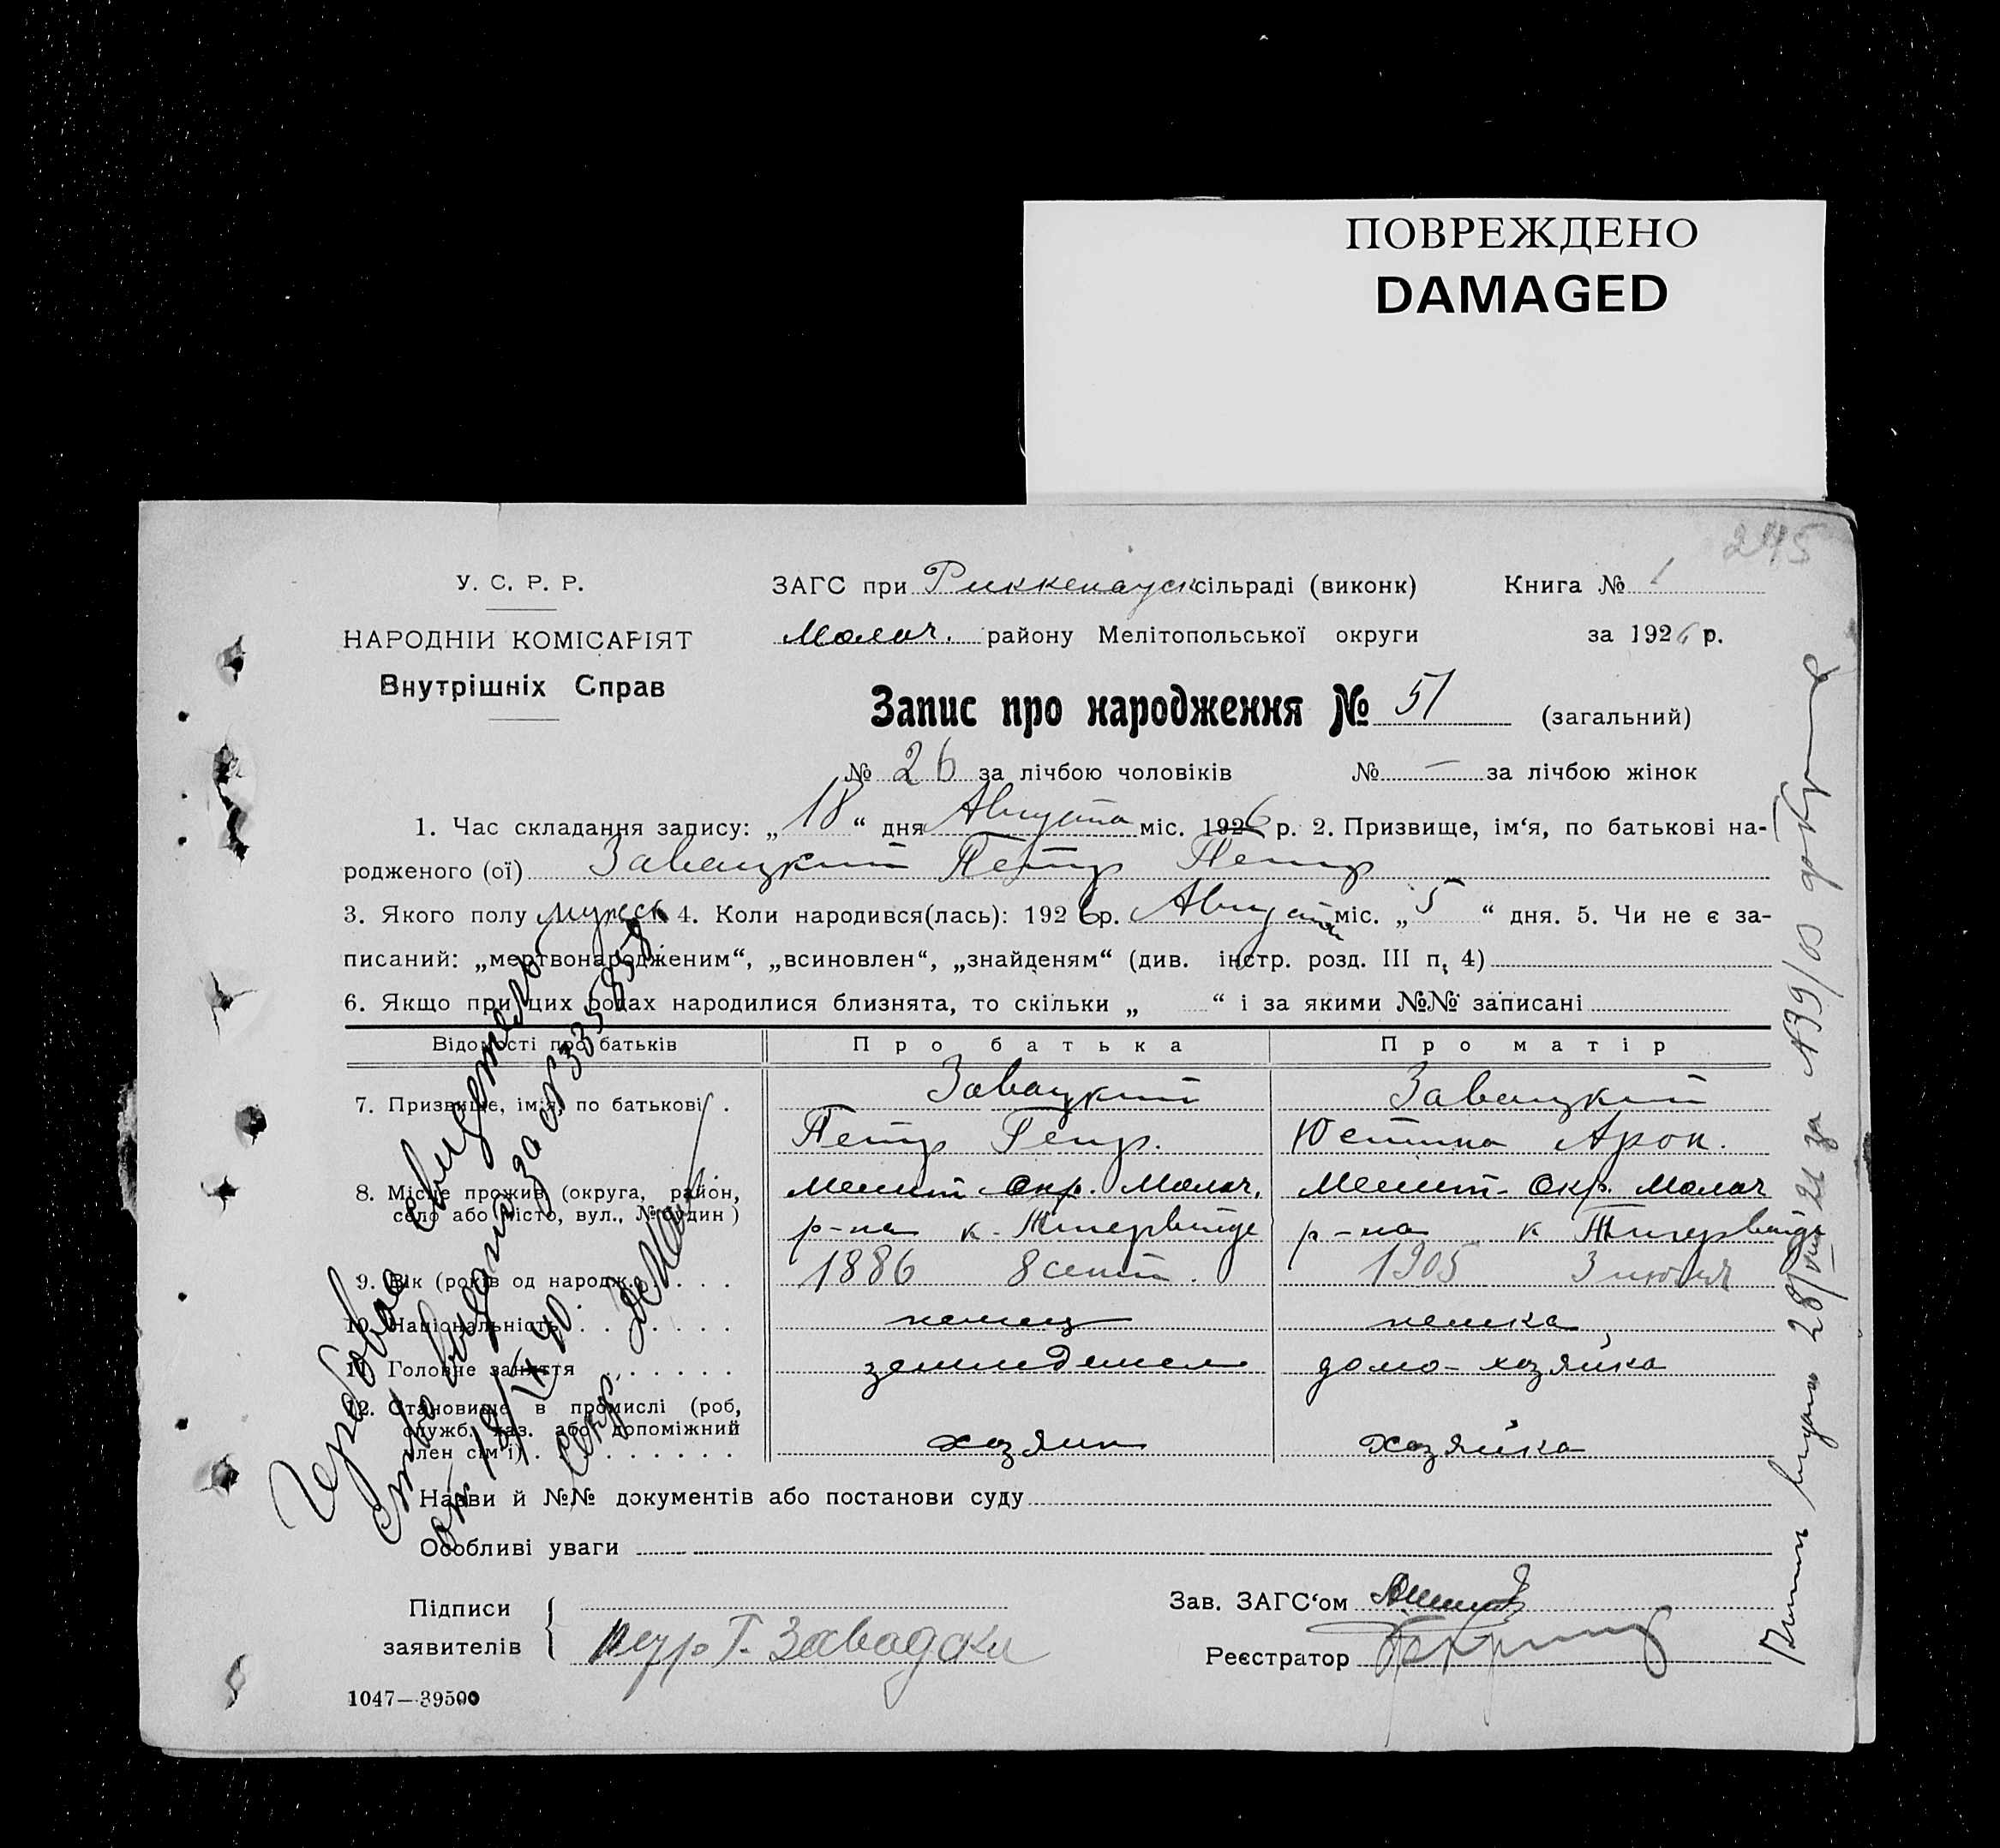 ПОВРЕЖДЕНО
DAMAGED
245
У. С. Р. Р.
НАРОДНІИ КОМІСАРІЯТ
Внутрішніх Справ
ЗАГС при Риккенауск сільраді (виконк)
Книга № 1
Молоч. району Мелітопольської округи
за 1926 р.
Запис про народження № 51 (загальний)
№ 26 за лічбою чоловіків № — за лічбою жінок
1. Час складання запису: „ 18 “ дня Августа міс. 1926 р. 2. Призвище, ім‘я, по батькові на-
родженого (ої) Завацкий Петр Петр
3. Якого полу мужск 4. Коли народився(лась): 1926 р. Августа міс. „ 5 “ дня. 5. Чи не є за-
писаний: „мертвонародженим“, „всиновлен“, „знайденям“ (див. інстр. розд. III п. 4)
6. Якщо при цих родах народилися близнята, то скільки „ “ і за якими №№ записані
Відомості про батьків
Про батька
Про матір
7. Призвище, ім‘я, по батькові .
Завацкий
Петр Генр.
Завацкий
Юстина Арон.
8. Місце прожив. (округа, район,
село або місто, вул., № будин)
Мелит Окр. Молоч.
р-на к. Тигервейде
Мелит. Окр. Молоч
р-на к Тигервейде
9. Вік (років од народж.
1886 8 сент.
1905 3 июля
10. Національність
немец
немка
11. Головне заняття
земледелел
домо-хозяйка
12. Становище в промислі (роб,
служб. хаз. або допоміжний
член сім‘ї)
хозяин
хозяйка
Назви й №№ документів або постанови суду
Особливі уваги
Підписи
заявителів
Петр Г. Завадски
Зав. ЗАГС‘ом
Реєстратор
1047—39500
Гербовое свидетель
ство выдано за №
от 19/IX 40
Секр.
выдана 28/VIII 26 за № 39/